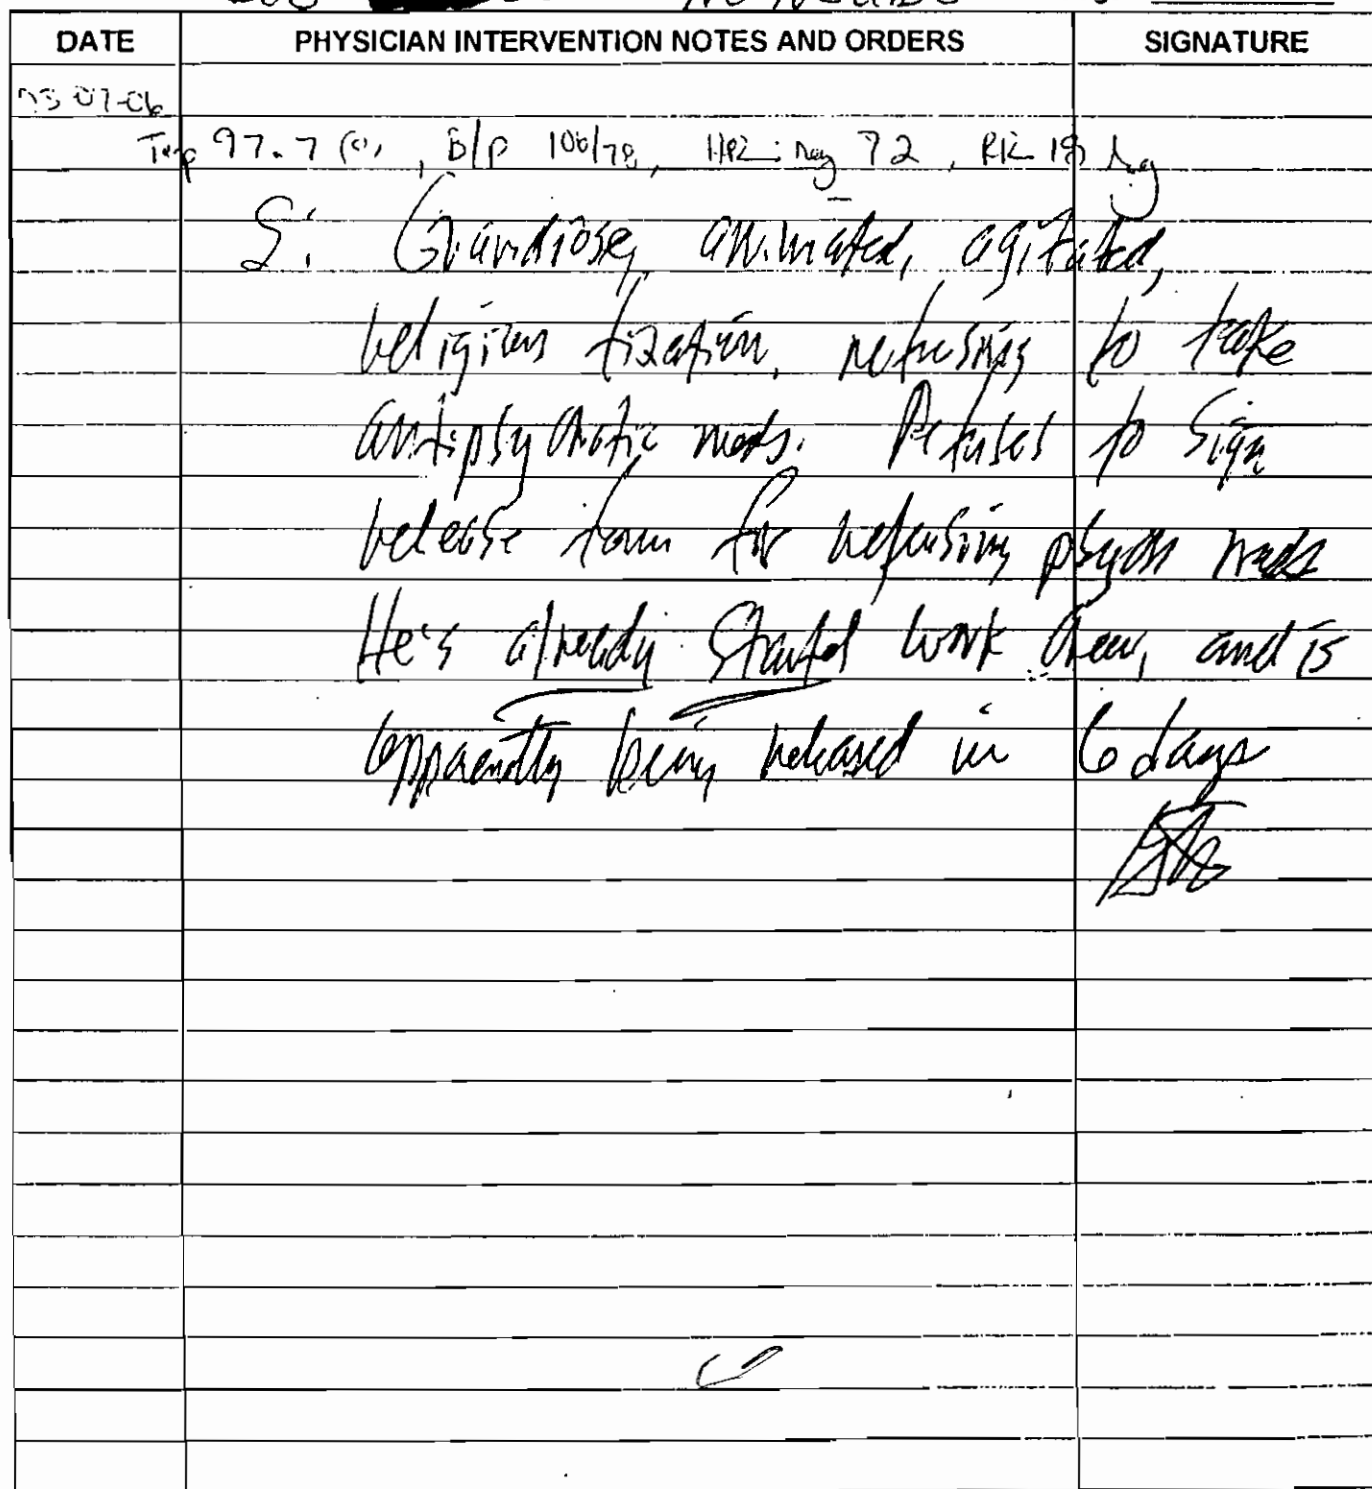 DATE PHYSICIAN INTERVENTION NOTES AND ORDERS SIGNATURE
03-07-06
Temp 97.7 (o), B/P 106/78, 72, RR 18
S: Grandiose, animated, agitated,
religious fixation, refusing to take
antipsychotic meds. Refuses to sign
release form for refusing psych meds
He's already started work crew, and is
apparently being released in 6 days